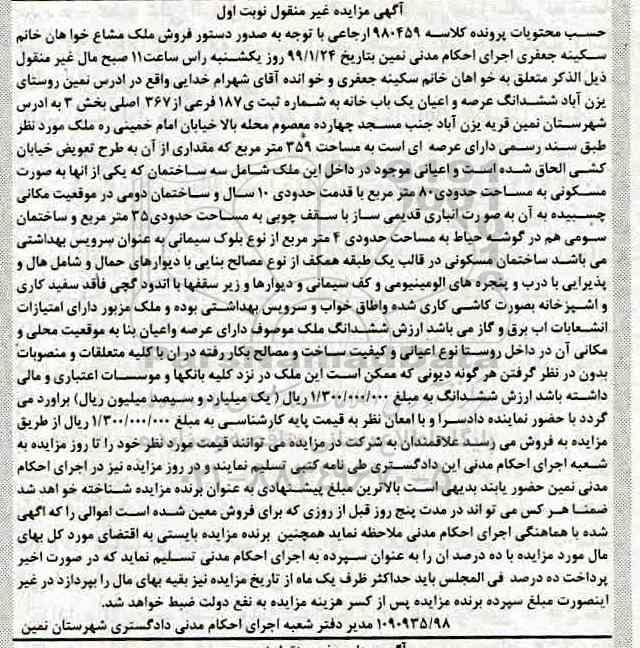 آگهی مزایده غیر منقول نوبت اول
حسب محتویات پرونده کلاسه ۹۸۰۴۵۹ ارجاعی با توجه به صدور دستور فروش ملک مشاع خواهان خانم
سکینه جعفری اجرای احکام مدنی نمین بتاریخ ۹۹/۱/۲۴ روز یکشنبه راس ساعت۱۱ صبح مال غیر منقول
ذیل الذکر متعلق به خواهان خانم سکینه جعفری و خوانده آقای شهرام خدایی واقع در ادرس نمین روستای
یزن آباد ششدانگ عرصه و اعیان یک باب خانه به شماره ثبت ی۱۸۷ فرعی از۳۶۷ اصلی بخش ۳ به ادرس
شهرستان نمین قریه یزن آباد جنب مسجد چهارده معصوم محله بالا خیابان امام خمینی ره ملک مورد نظر
طبق سند رسمی دارای عرصه ای است به مساحت ۳۵۹ متر مربع که مقداری از آن به طرح تعویض خیابان
کشی الحاق شده است و اعیانی موجود در داخل این ملک شامل سه ساختمان که یکی از انها به صورت
مسکونی به مساحت حدودی۸۰ متر مربع با قدمت حدودی ۱۰ سال و ساختمان دومی در موقعیت مکانی
چسبیده به آن به صورت انباری قدیمی ساز با سقف چوبی به مساحت حدودی۳۵ متر مربع و ساختمان
سومی هم در گوشه حیاط به مساحت حدودی ۴ متر مربع از نوع بلوک سیمانی به عنوان سرویس بهداشتی
می باشد ساختمان مسکونی در قالب یک طبقه همکف از نوع مصالح بنایی با دیوارهای حمال و شامل هال و
پذیرایی با درب و پنجره های الومینیومی و کف سیمانی و دیوارها و زیر سقفها با اندود گچی فاقد سفید کاری
و اشپزخانه بصورت کاشی کاری شده واطاق خواب و سرویس بهداشتی بوده و ملک مزبور دارای امتیازات
انشعابات اب برق و گاز می باشد ارزش ششدانگ ملک موصوف دارای عرصه واعیان بنا به موقعیت محلی و
مکانی آن در داخل روستا نوع اعیانی و کیفیت ساخت و مصالح بکار رفته در ان با کلیه متعلقات و منصوبات
بدون در نظر گرفتن هر گونه دیونی که ممکن است این ملک در نزد کلیه بانکها و موسسات اعتباری و مالی
داشته باشد ارزش ششدانگ به مبلغ ۱/۳۰۰/۰۰۰/۰۰۰ ریال ( یک میلیارد و سیصد میلیون ریال) براورد می
گردد با حضور نماینده دادسرا و با امعان نظر به قیمت پایه کارشناسی به مبلغ ۱/۳۰۰/۰۰۰/۰۰۰ ریال از طریق
مزایده به فروش می رسد علاقمندان به شرکت در مزایده می توانند قیمت مورد نظر خود را تا روز مزایده به
شعبه اجرای احکام مدنی این دادگستری طی نامه کتبی تسلیم نمایند و در روز مزایده نیز در اجرای احکام
مدنی نمین حضور یابند بدیهی است بالاترین مبلغ پیشنهادی به عنوان برنده مزایده شناخته خواهد شد
ضمنا هر کس می تواند در مدت پنج روز قبل از روزی که برای فروش معین شده است اموالی را که اگهی
شده با هماهنگی اجرای احکام مدنی ملاحظه نماید همچنین برنده مزایده بایستی به اقتضای مورد کل بهای
مال مورد مزایده با ده درصد ان را به عنوان سپرده به اجرای احکام مدنی تسلیم نماید که در صورت اخیر
پرداخت ده درصد فی المجلس باید حداکثر ظرف یک ماه از تاریخ مزایده نیز بقیه بهای مال را بپردازد در غیر
اینصورت مبلغ سپرده برنده مزایده پس از کسر هزینه مزایده به نفع دولت ضبط خواهد شد.
۱۰۹۰۹۳۵/۹۸ مدیر دفتر شعبه اجرای احکام مدنی دادگستری شهرستان نمین